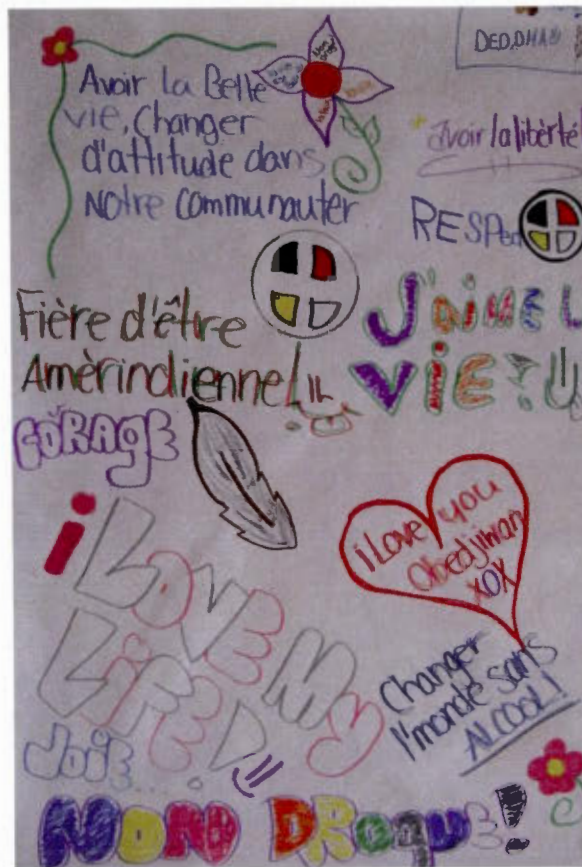 Avoir la Belle
vie, Changer
d'attitude dans
Notre communauter
Avoir la libèrté
RESPect
Fière d'être
Amèrindienne
J'AIME L
ViE
CORAGE
i LOVE MY
LiFE
i Love you
Obedjiwan
XOX
Changer
l'monde sans
ALCOOL!
JOiE
NON DROGUE!